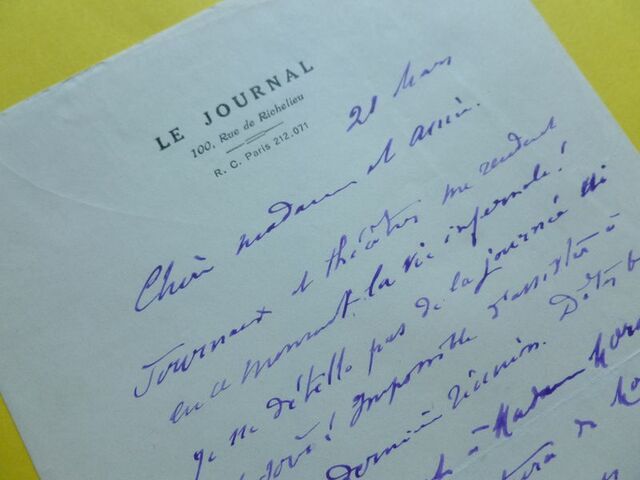 LE JOURNAL
100, Rue de Richelieu
R. C. Paris 212.071
28 Mars
Chère madame et amie.
Journaux et théâtres me rendent
en ce moment la vie infernale!
je ne détèlle pas de la journée ni
Impossible d'assister à
dernière réunion.
à Madame
de